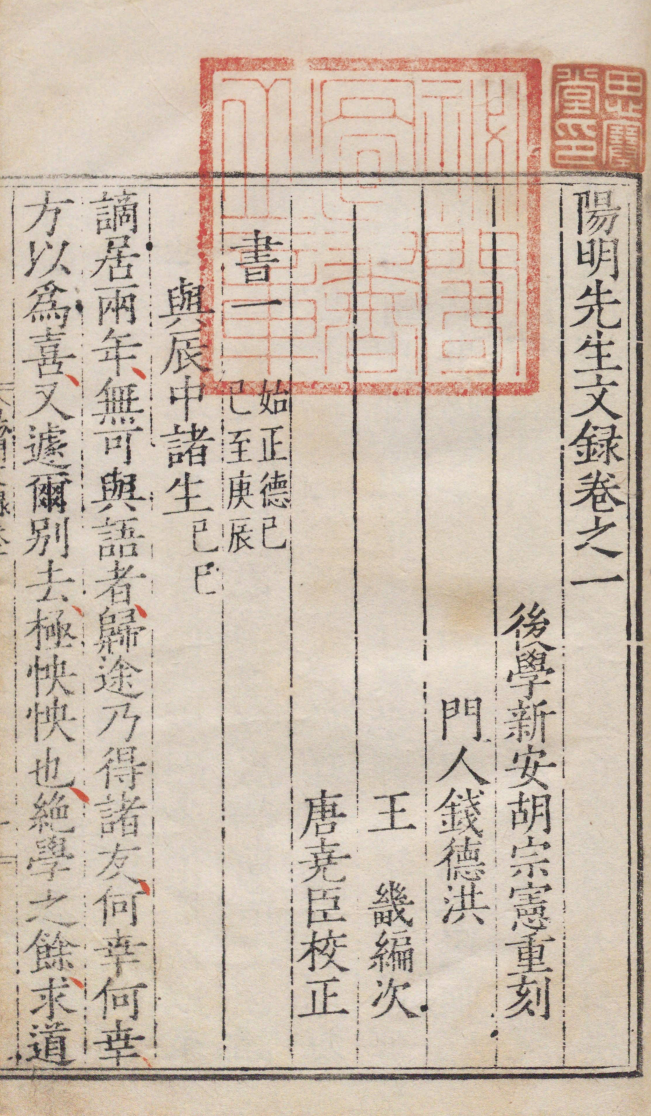 陽明先生文録卷之一
後學新安胡宗憲重刻
門人錢德洪
王畿編次
唐堯臣校正
書一
始正德己
已至庚辰
與辰中諸生己巳
謫居兩年、無可與語者、歸途乃得諸友、何幸何幸、
方以爲喜、又遽爾別去、極怏怏也、絶學之餘、求道